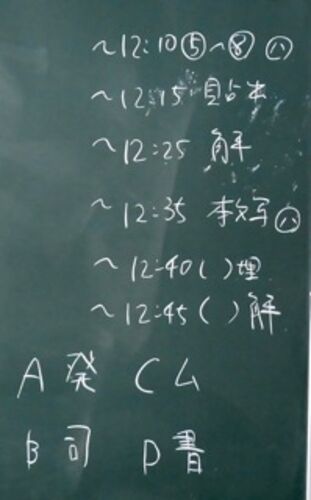 ~12:10⑤~⑧㈧
~12:15 貼本
~12:25 解
~12:35 本写㈧
~12:40( )埋
~12:45( )解
A 発 C ム
B 司 D 書